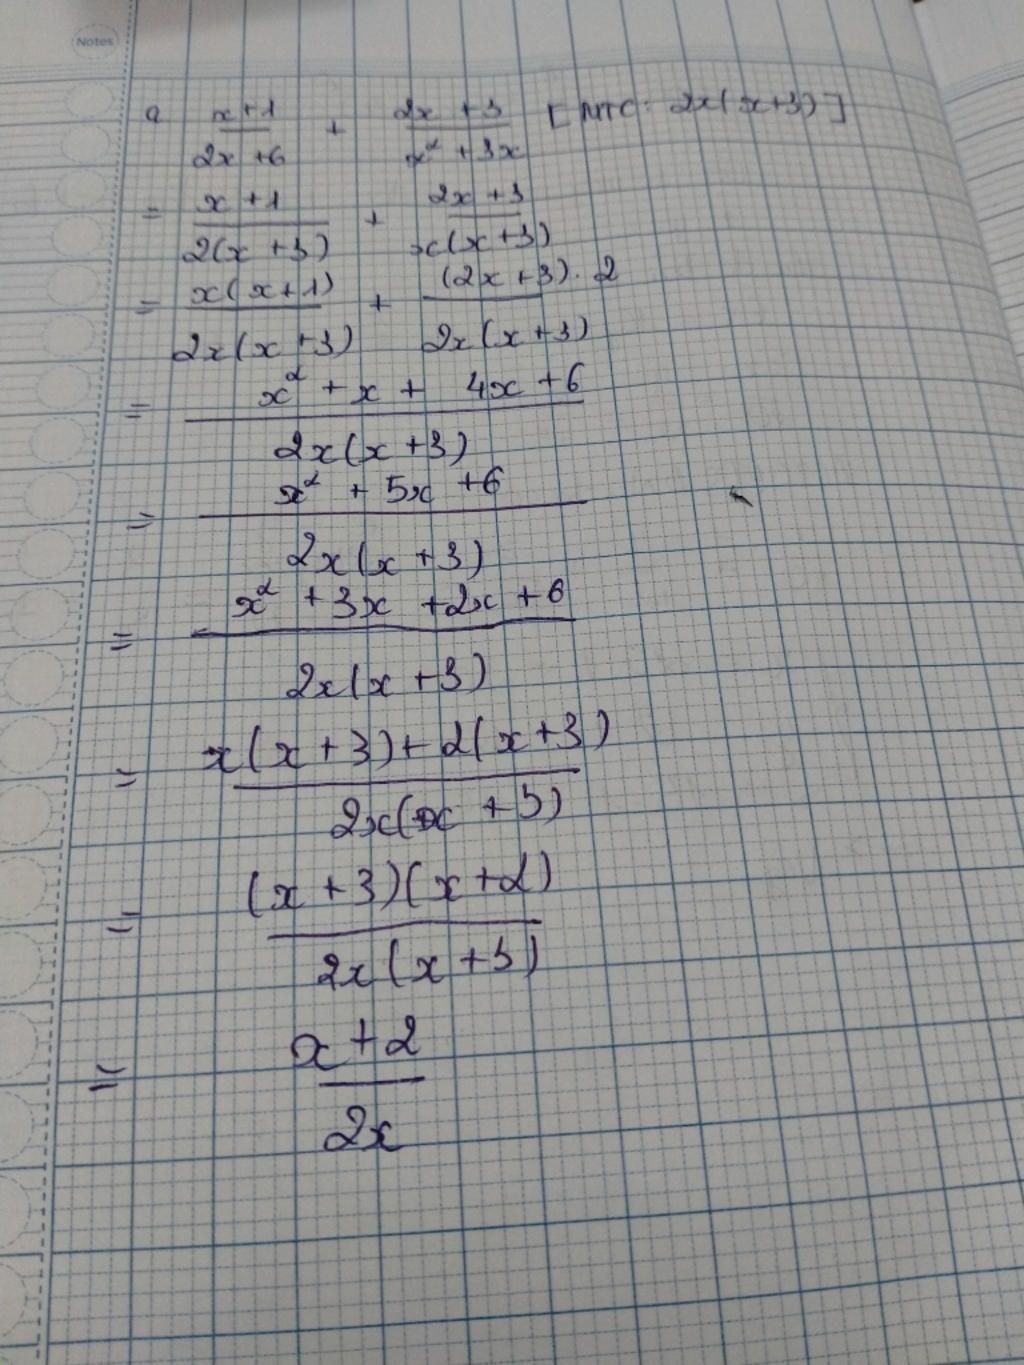 Notes
a x+1/2x+6 + 2x+3/x²+3x [MTC: 2x(x+3)]
= x+1/2(x+3) + 2x+3/x(x+3)
= x(x+1)/2x(x+3) + (2x+3).2/2x(x+3)
= x²+x+4x+6/2x(x+3)
= x²+5x+6/2x(x+3)
= x²+3x+2x+6/2x(x+3)
= x(x+3)+2(x+3)/2x(x+3)
= (x+3)(x+2)/2x(x+3)
= x+2/2x